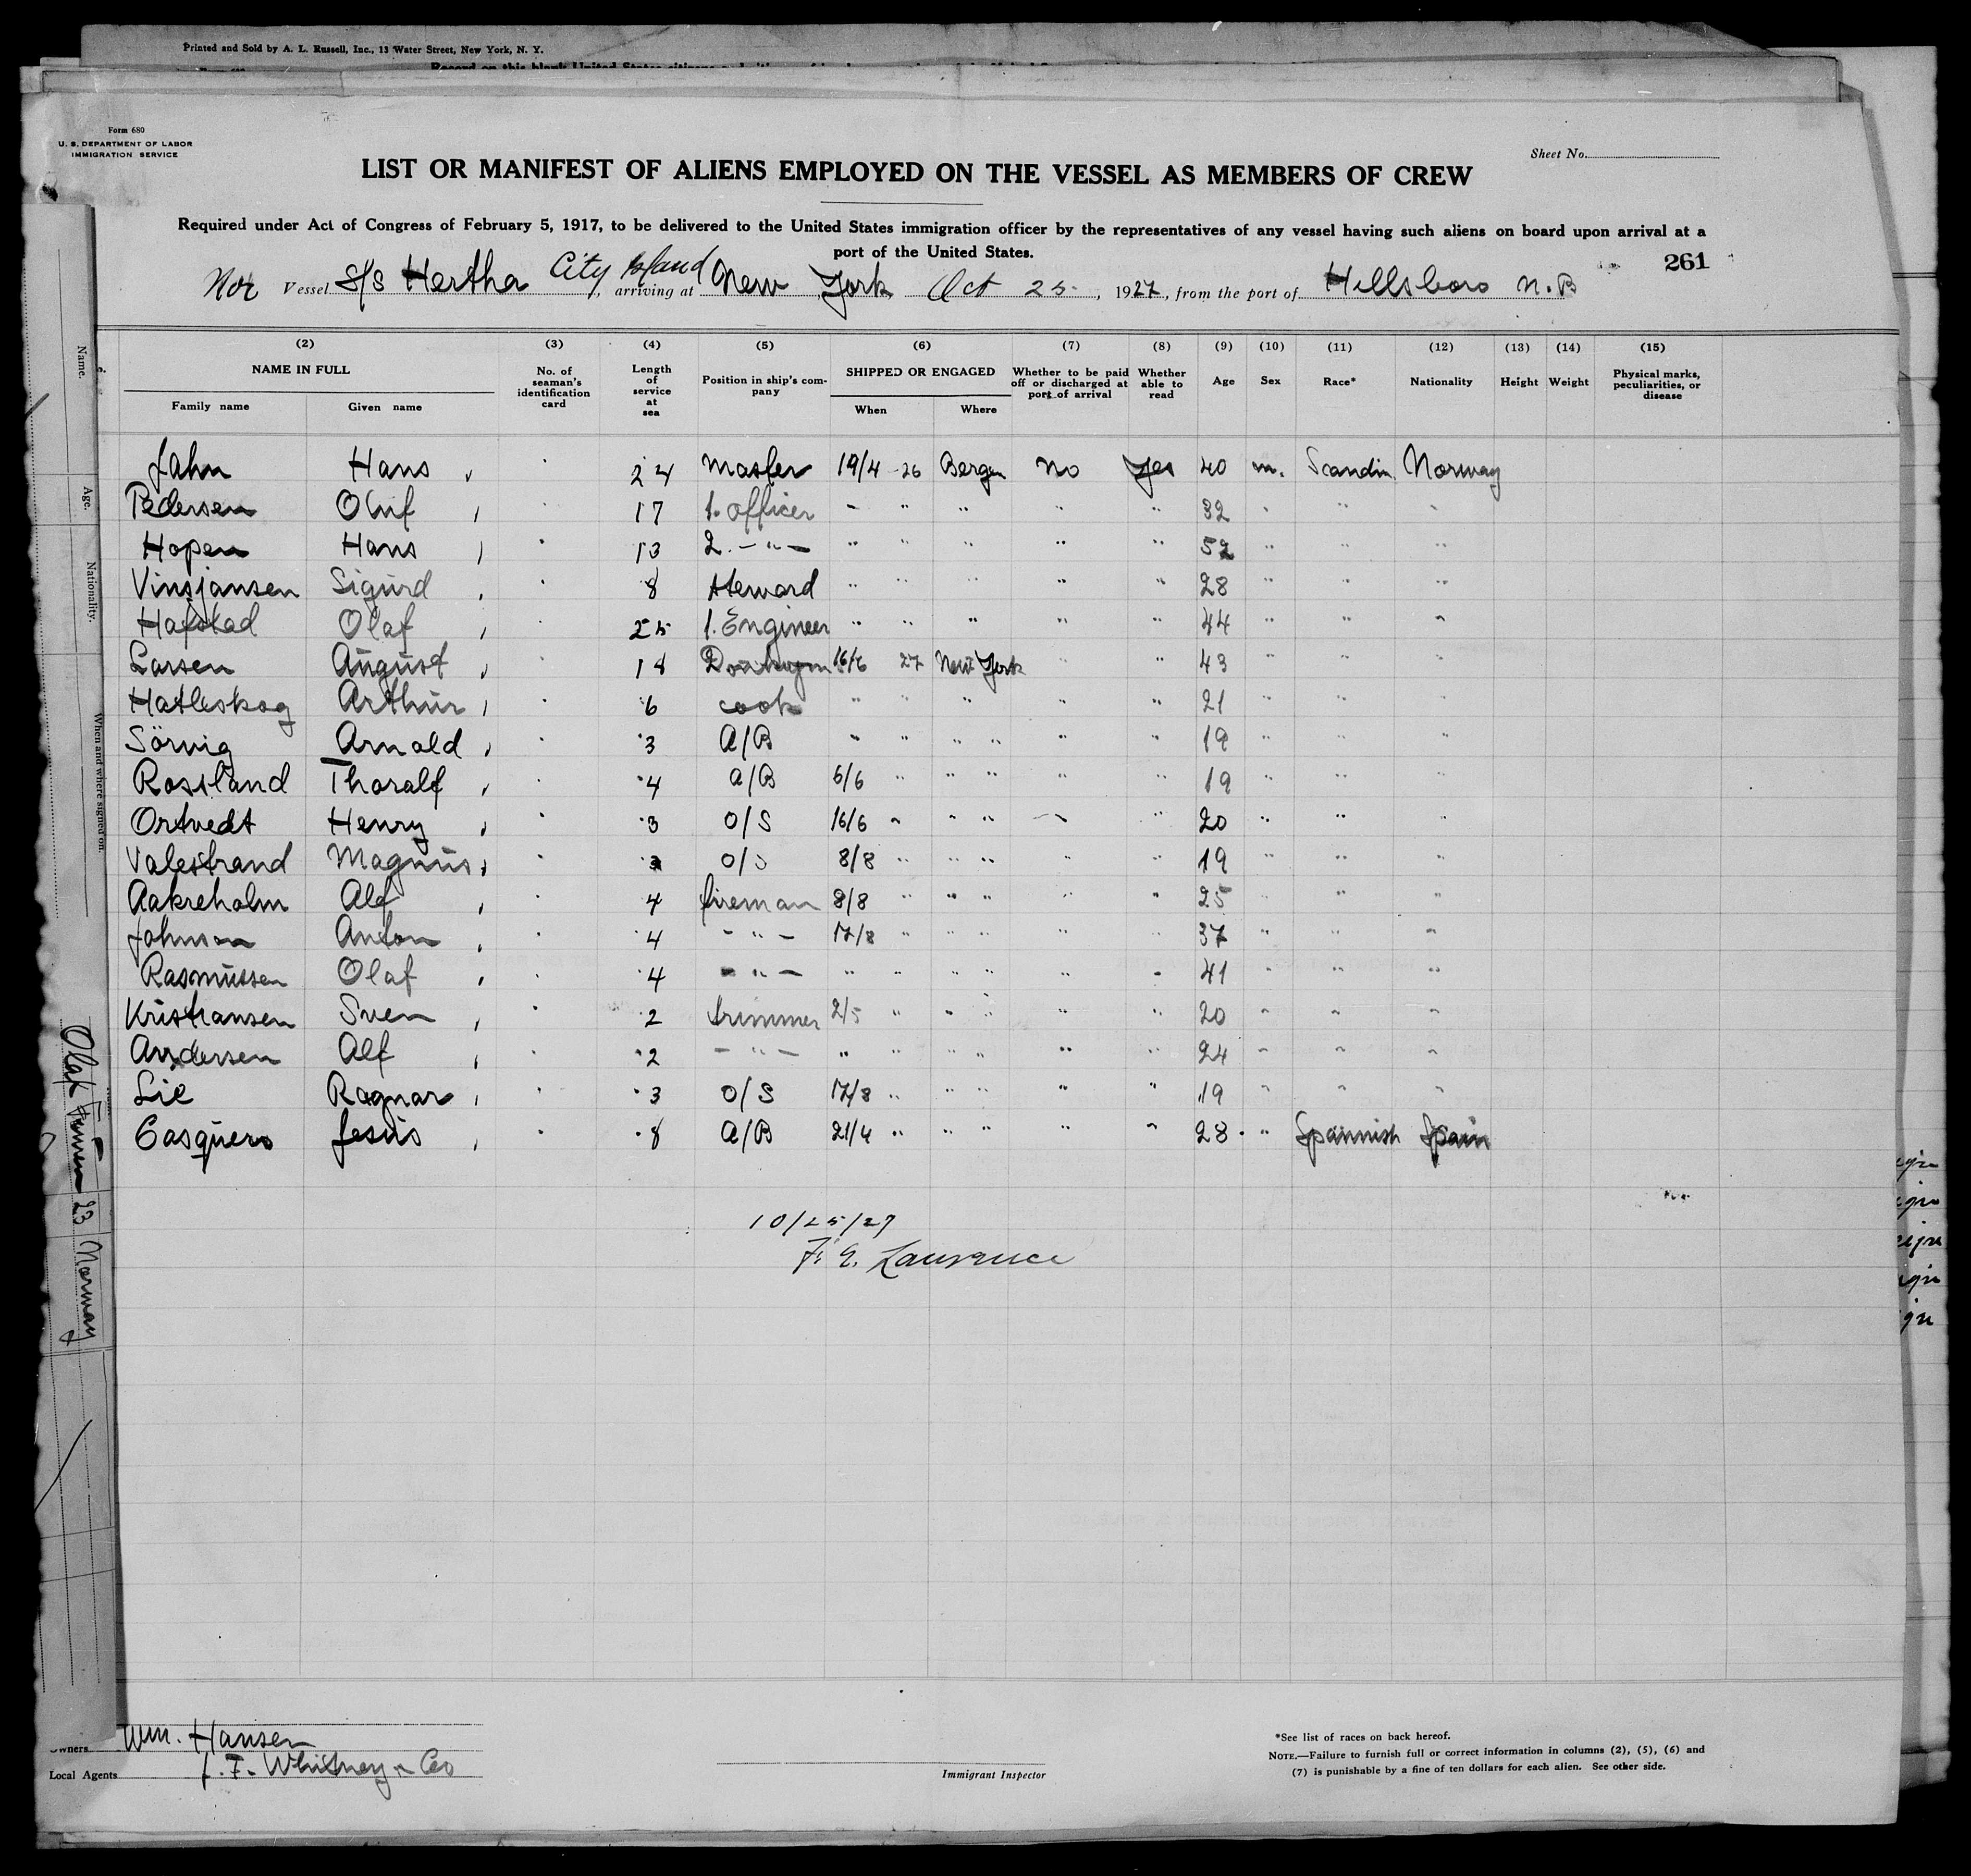 Printed and Sold by A. L. Russell, Inc., 13 Water Street, New York, N. Y.
Record on this blank United States citizens
Form 680
U. S. DEPARTMENT OF LABOR
IMMIGRATION SERVICE
Sheet No.
LIST OR MANIFEST OF ALIENS EMPLOYED ON THE VESSEL AS MEMBERS OF CREW
Required under Act of Congress of February 5, 1917, to be delivered to the United States immigration officer by the representatives of any vessel having such aliens on board upon arrival at a
port of the United States.
261
Nor Vessel S/S Hertha, arriving at City Island New York Oct 25, 1927, from the port of Hillsboro N.B
(2) (3) (4) (5) (6) (7) (8) (9) (10) (11) (12) (13) (14) (15)
NAME IN FULL No. of seaman's identification card Length of service at sea Position in ship's company SHIPPED OR ENGAGED Whether to be paid off or discharged at port of arrival Whether able to read Age Sex Race* Nationality Height Weight Physical marks, peculiarities, or disease
Family name Given name When Where
Jahn Hans 24 Master 19/4 -26 Bergen no Yes 40 m. Scandin. Norway
Pedersen Oluf 17 1. officer - " " " " 32 " " "
Hopen Hans 13 2. - " - " " " " " 52 " " "
Vinsjansen Sigurd 8 Steward " " " " " 28 " " "
Hafstad Olaf 25 1. Engineer " " " " " 44 " " "
Larsen August 18 16/6 27 New York " " 43 " " "
Hatleskog Arthur 6 cook " " " " " 21 " " "
Sörvig Arnold 3 A/B " " " " " " 19 " " "
Rossland Thoralf 4 A/B 6/6 " " " " " 19 " " "
Ortvedt Henry 3 O/S 16/6 " " " " " 20 " " "
Valestrand Magnus 3 O/S 8/8 " " " " " 19 " " "
Aakreholm Alf 4 fireman 8/8 " " " " " 25 " " "
Johnson Anton 4 - " - 17/8 " " " " " 37 " " "
Rasmussen Olaf 4 - " - " " " " " " 41 " " "
Kristiansen Sven 2 trimmer 2/5 " " " " " 20 " " "
Andersen Alf 2 - " - " " " " " " 24 " " "
Lie Ragnar 3 O/S 17/8 " " " " " 19 " " "
Casquero Jesús 8 A/B 21/4 " " " " " 28 " Spannish Spain
10/25/27
F. E. Lawrence
Owners Wm. Hansen
Local Agents J. F. Whitney & Co
Immigrant Inspector
*See list of races on back hereof.
NOTE.—Failure to furnish full or correct information in columns (2), (5), (6) and
(7) is punishable by a fine of ten dollars for each alien. See other side.
Name.
Age.
Nationality.
When and where signed on.
Olaf
23 Norway